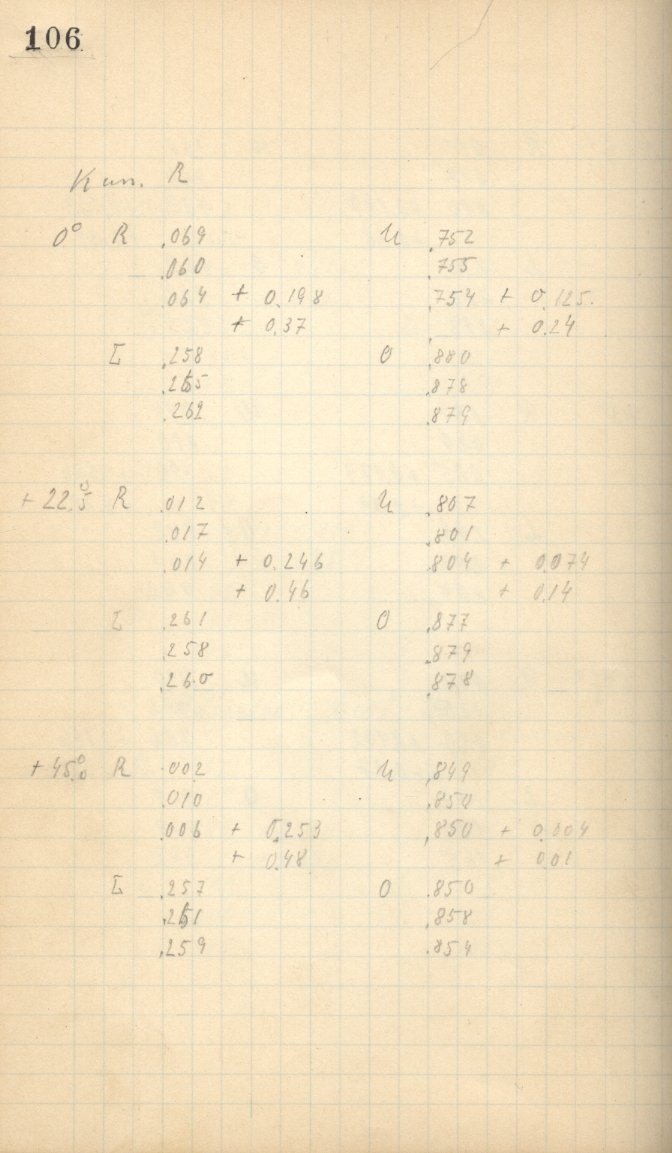 106
Kan. R
0° R .069 U .752
.060 .755
.064 + 0.198 .754 + 0.125.
+ 0.37 + 0.24
L .258 O .880
.265 .878
.262 .879
+ 22.°5 R .012 U .807
.017 .801
.014 + 0.246 .804 + 0.074
+ 0.46 + 0.14
L .261 O .877
.258 .879
.260 .878
+ 45.°0 R .002 U .849
.010 .850
.006 + 0.253 .850 + 0.004
+ 0.48 + 0.01
L .257 O .850
.261 .858
.259 .854